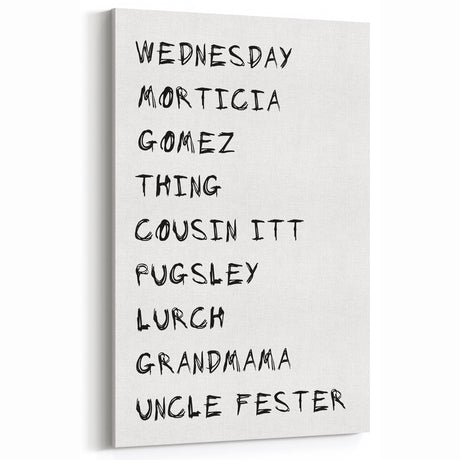 WEDNESDAY
MORTICIA
GOMEZ
THING
COUSIN ITT
PUGSLEY
LURCH
GRANDMAMA
UNCLE FESTER